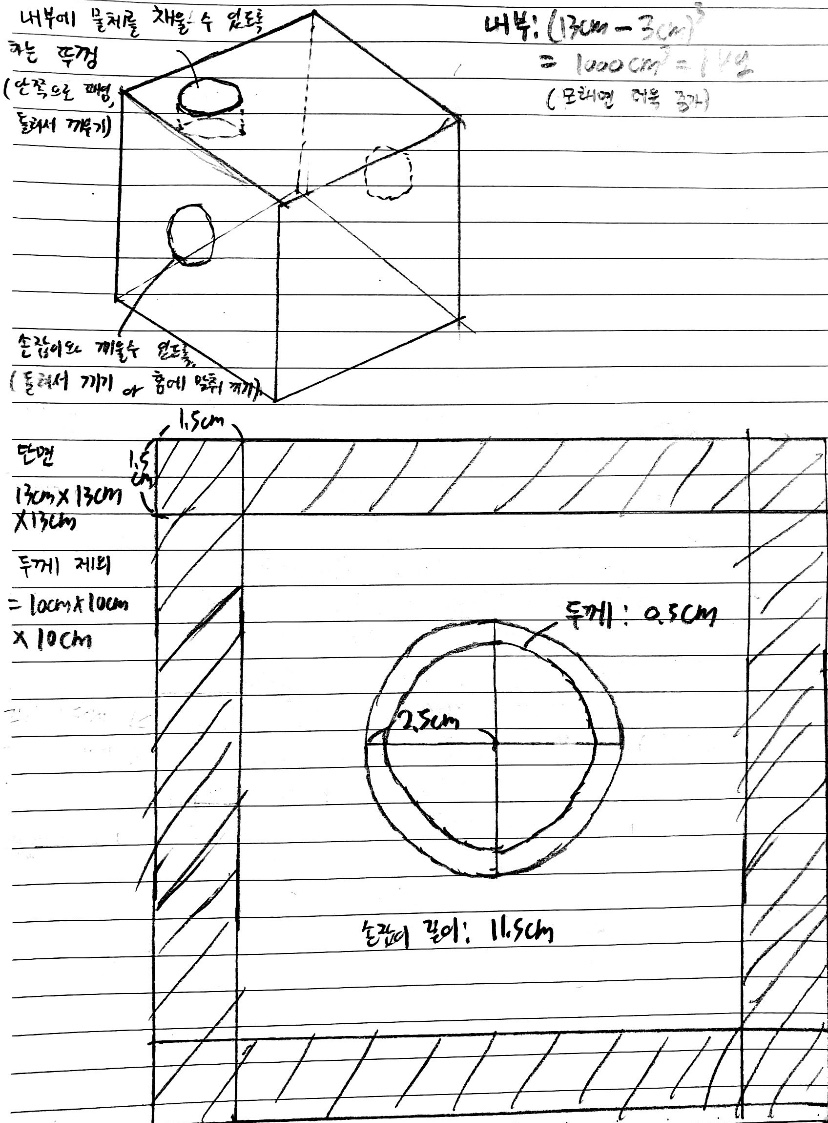 내부에 물체를 채울 수 있도록
하는 뚜껑
(안쪽으로 패임,
돌려서 끼우기)
내부: (13cm - 3cm)³
= 1000cm³ = 1
(모래면 더욱 증가)
손잡이와 끼울수 있도록,
(돌려서 끼기 or 홈에 맞춰 끼기)
1.5cm
1.5
cm
단면
13cm X 13cm
X 13cm
두께 제외
= 10cm X 10cm
X 10cm
두께: 0.5cm
2.5cm
손잡이 길이: 11.5cm